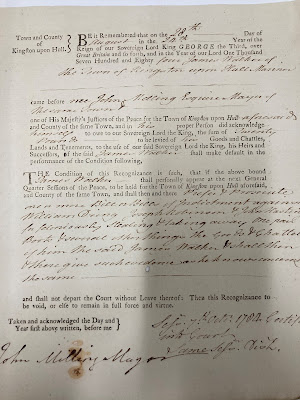 Town and County of Kingston upon Hull.
BE it Remembered that on the 28th Day of
August in the 24th Year of the
Reign of our Sovereign Lord King GEORGE the Third, over
Great Britain and so forth, and in the Year of our Lord One Thousand
Seven Hundred and Eighty four James Walker of
the Town of Kingston upon Hull
came before me John Melling Esquire Mayor of
the said Town
one of his Majesty's Justices of the Peace for the Town of Kingston upon Hull aforesaid
and County of the same Town, and in his proper Person did acknowledge
himself to owe to our Sovereign Lord the King, the sum of Twenty
Pounds to be levied of his Goods and Chattles,
Lands and Tenements, to the use of our said Sovereign Lord the King, his Heirs and
Successors, if the said James Walker shall make default in the
performance of the Condition following.
THE Condition of this Recognizance is such, that if the above bound
James Walker shall personally appear at the next General
Quarter Sessions of the Peace, to be held for the Town of Kingston upon Hull aforesaid,
and County of the same Town, and shall then and there prefer & prosecute
one or more Bill or Bills of Indictment against
William Joseph &
feloniously Stealing taking away
Goods & Chattles
of him the said James Walker & shall then
& there give such evidence as he knows concerning
the same
and shall not depart the Court without Leave thereof: Then this Recognizance to
be void, or else to remain in full force and virtue.
Taken and acknowledged the Day and
Year first above written, before me
John Melling Mayor
7th Octr. 1784